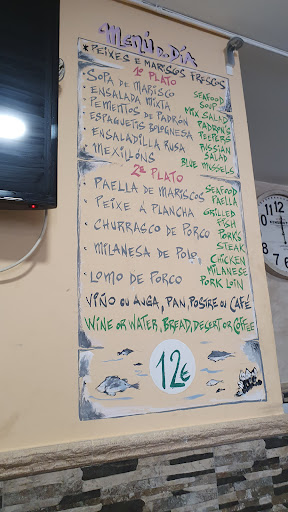 MENÚ DO DÍA
* PEIXES E MARISCOS FRESCOS
1º PLATO
· SOPA DE MARISCO SEAFOOD SOUP
· ENSALADA MIXTA MIX SALAD
· PEMENTOS DE PADRÓN PADRON'S PEEPERS
· ESPAGUETIS BOLONESA
· ENSALADILLA RUSA RUSSIAN SALAD
· MEXILLÓNS BLUE MUSSELS
2º PLATO
· PAELLA DE MARISCOS SEAFOOD PAELLA
· PEIXE Á PLANCHA GRILLED FISH
· CHURRASCO DE PORCO PORK'S STEAK
· MILANESA DE POLO, CHICKEN MILANESE
· LOMO DE PORCO PORK LOIN
VIÑO OU AUGA, PAN, POSTRE OU CAFÉ
WINE OR WATER, BREAD, DESERT OR COFFEE
12€